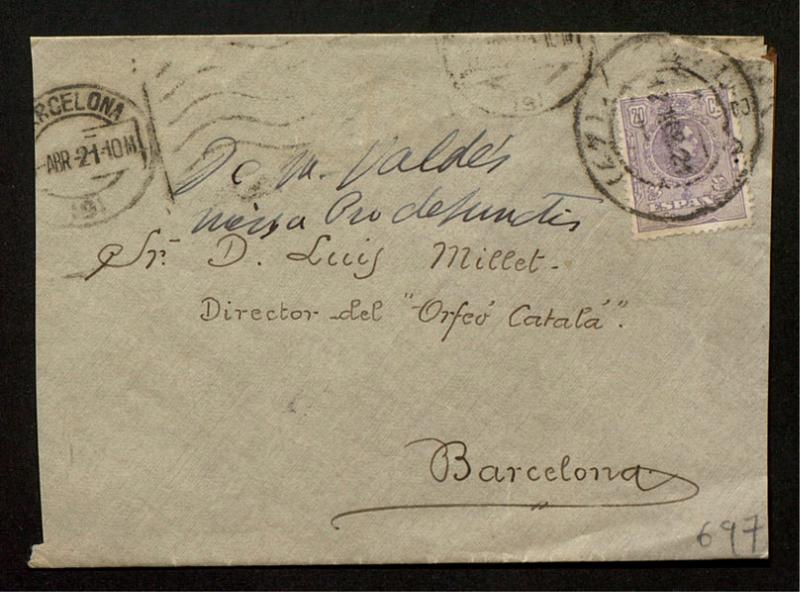 BARCELONA
ABR-21-10M
191
20 Cs
ESPAÑA
De M. Valdés
missa Pro defunctis
Sr. D. Luis Millet.
Director del "Orfeó Catalá".
Barcelona
697